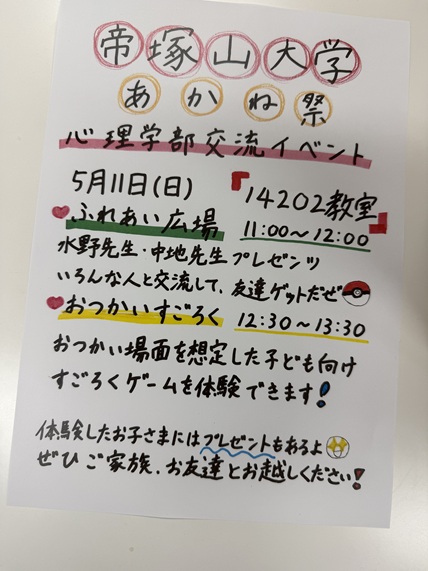 帝塚山大学
あかね祭
心理学部交流イベント
5月11日(日) 『14202教室』
ふれあい広場 11:00〜12:00
水野先生・中地先生プレゼンツ
いろんな人と交流して、友達ゲットだぜ
おつかいすごろく 12:30〜13:30
おつかい場面を想定した子ども向け
すごろくゲームを体験できます!
体験したお子さまにはプレゼントもあるよ
ぜひご家族、お友達とお越しください!